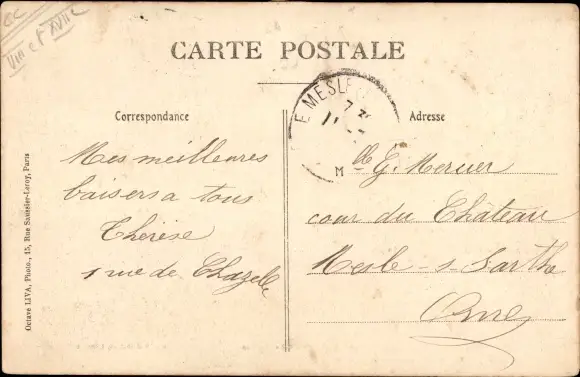 CC
VIII et XVIIe
CARTE POSTALE
Correspondance
Adresse
LE MESLE
7
Mes meilleures
baisers a tous
Thérèse
1 rue de Chazelle
Mlle G. Mercier
cour du Château
Mesle-s-Sarthe
Orne
Octave LIVA, Photo., 15, Rue Saussier-Leroy, Paris